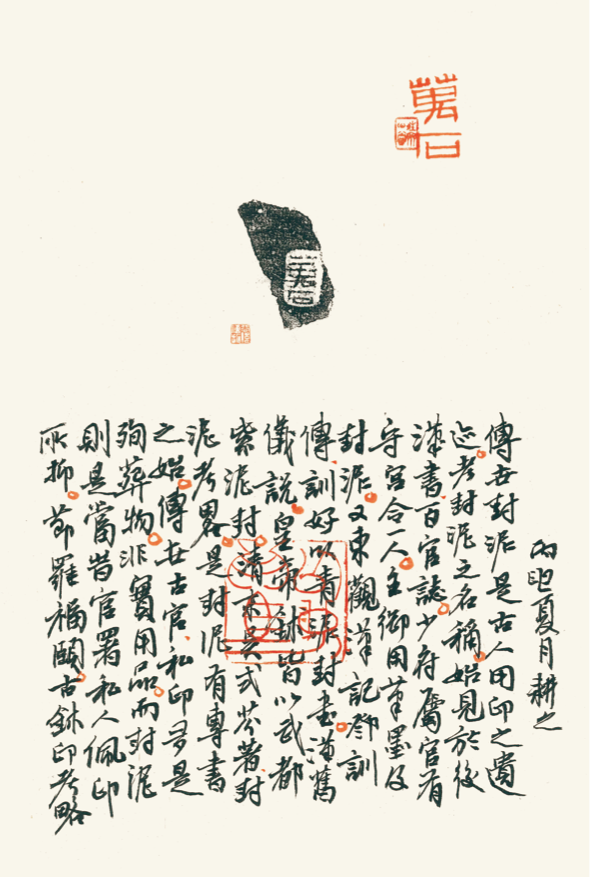 萬石
萬石
傳世封泥是古人用印之遺
迹考封泥之名稱始見於後
漢書百官誌少府屬官有
守宮令一人主御用筆墨及
封泥又東觀漢記鄧訓
傳訓好以青泥封書漢舊
儀説皇帝鉥皆以武都
紫泥封清末吳式芬著封
泥考畧是封泥有專書
之始傳世古官私印多是
殉葬物非實用品而封泥
則是當昔官署私人佩印
所抑節羅福頤古鉥印考略
夏月耕之